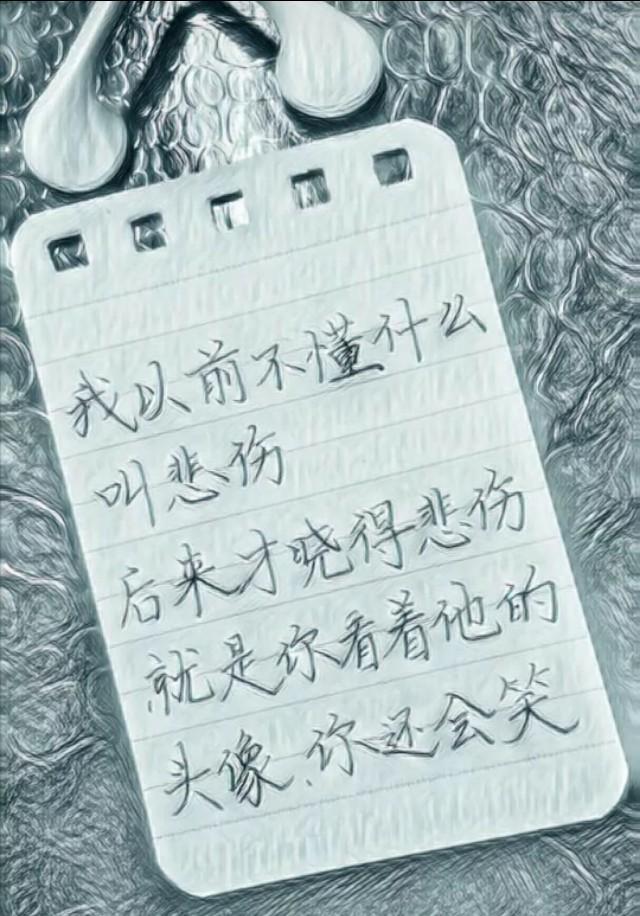 我以前不懂什么
叫悲伤
后来才晓得悲伤
就是你看着他的
头像、你还会笑